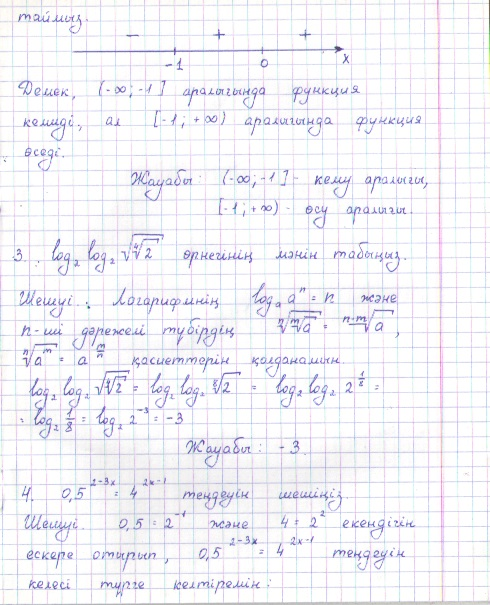 таймыз.
− + +
-1 0 x
Демек, (-∞; -1] аралығында функция
кемиді, ал [-1; +∞) аралығында функция
өседі.
Жауабы: (-∞; -1] - кему аралығы,
[-1; +∞) - өсу аралығы.
3. log₂ log₂ √⁴√2 өрнегінің мәнін табыңыз.
Шешуі: Логарифмнің logₐ aⁿ = n және
n-ші дәрежелі түбірдің ⁿ√ᵐ√a = ⁿ·ᵐ√a,
ⁿ√aᵐ = a^(m/n) қасиеттерін қолданамын.
log₂ log₂ √⁴√2 = log₂ log₂ ⁸√2 = log₂ log₂ 2^(1/8) =
= log₂ 1/8 = log₂ 2⁻³ = -3
Жауабы: -3.
4. 0,5^(2-3x) = 4^(2x-1) теңдеуін шешіңіз
Шешуі. 0,5 = 2⁻¹ және 4 = 2² екендігін
ескере отырып, 0,5^(2-3x) = 4^(2x-1) теңдеуін
келесі түрге келтіремін: